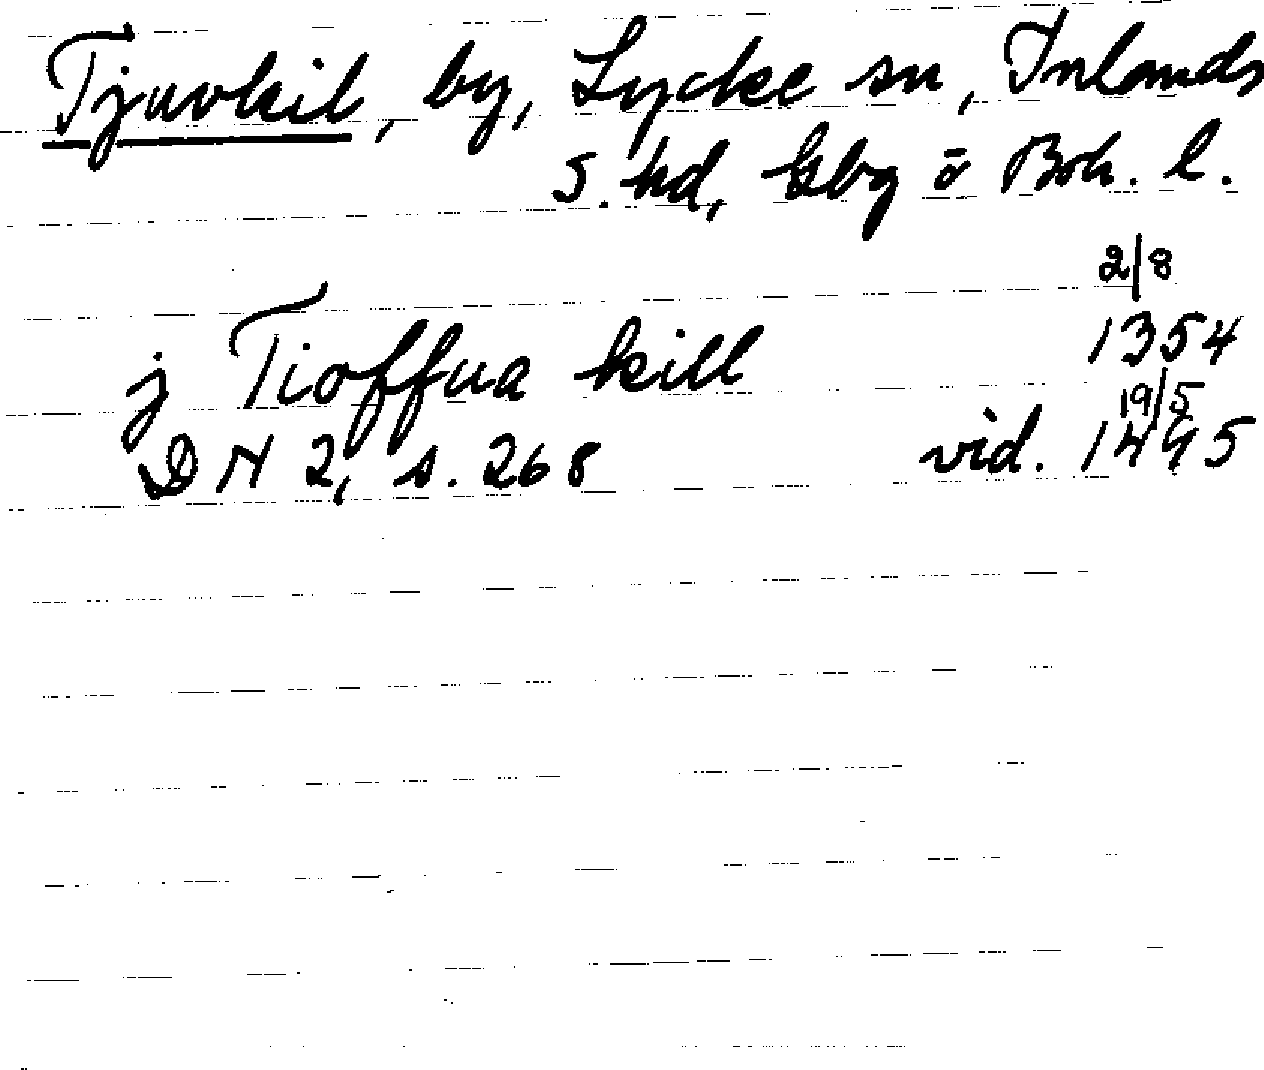 Tjuvkil, by, Lycke sn, Inlands
S. hd, Gbg o Boh. l.
2/8
j Tioffua kill 1354
19/5
DN 2, s. 268 vid. 1445